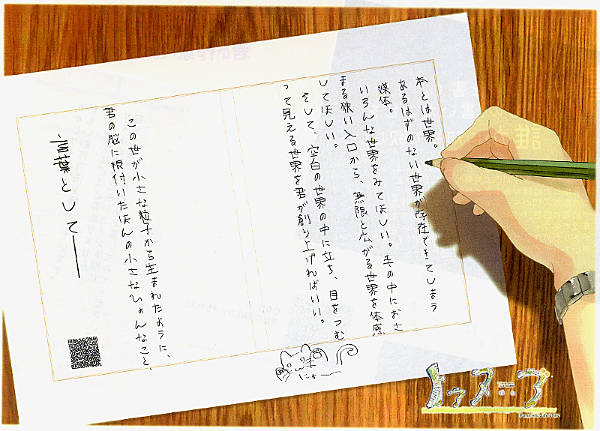 本とは世界。
あるはずのない世界が存在できてしまう
媒体。
いろんな世界をみてほしい。手の中におさ
まる狭い入口から、無限と広がる世界を体感
してほしい。
そして、空白の世界の中に立ち、目をつむ
って見える世界を君が創り上げればいい。
この世が小さな粒子から生まれたように、
君の脳に根付いたほんの小さなひょんなこと、
言葉として――